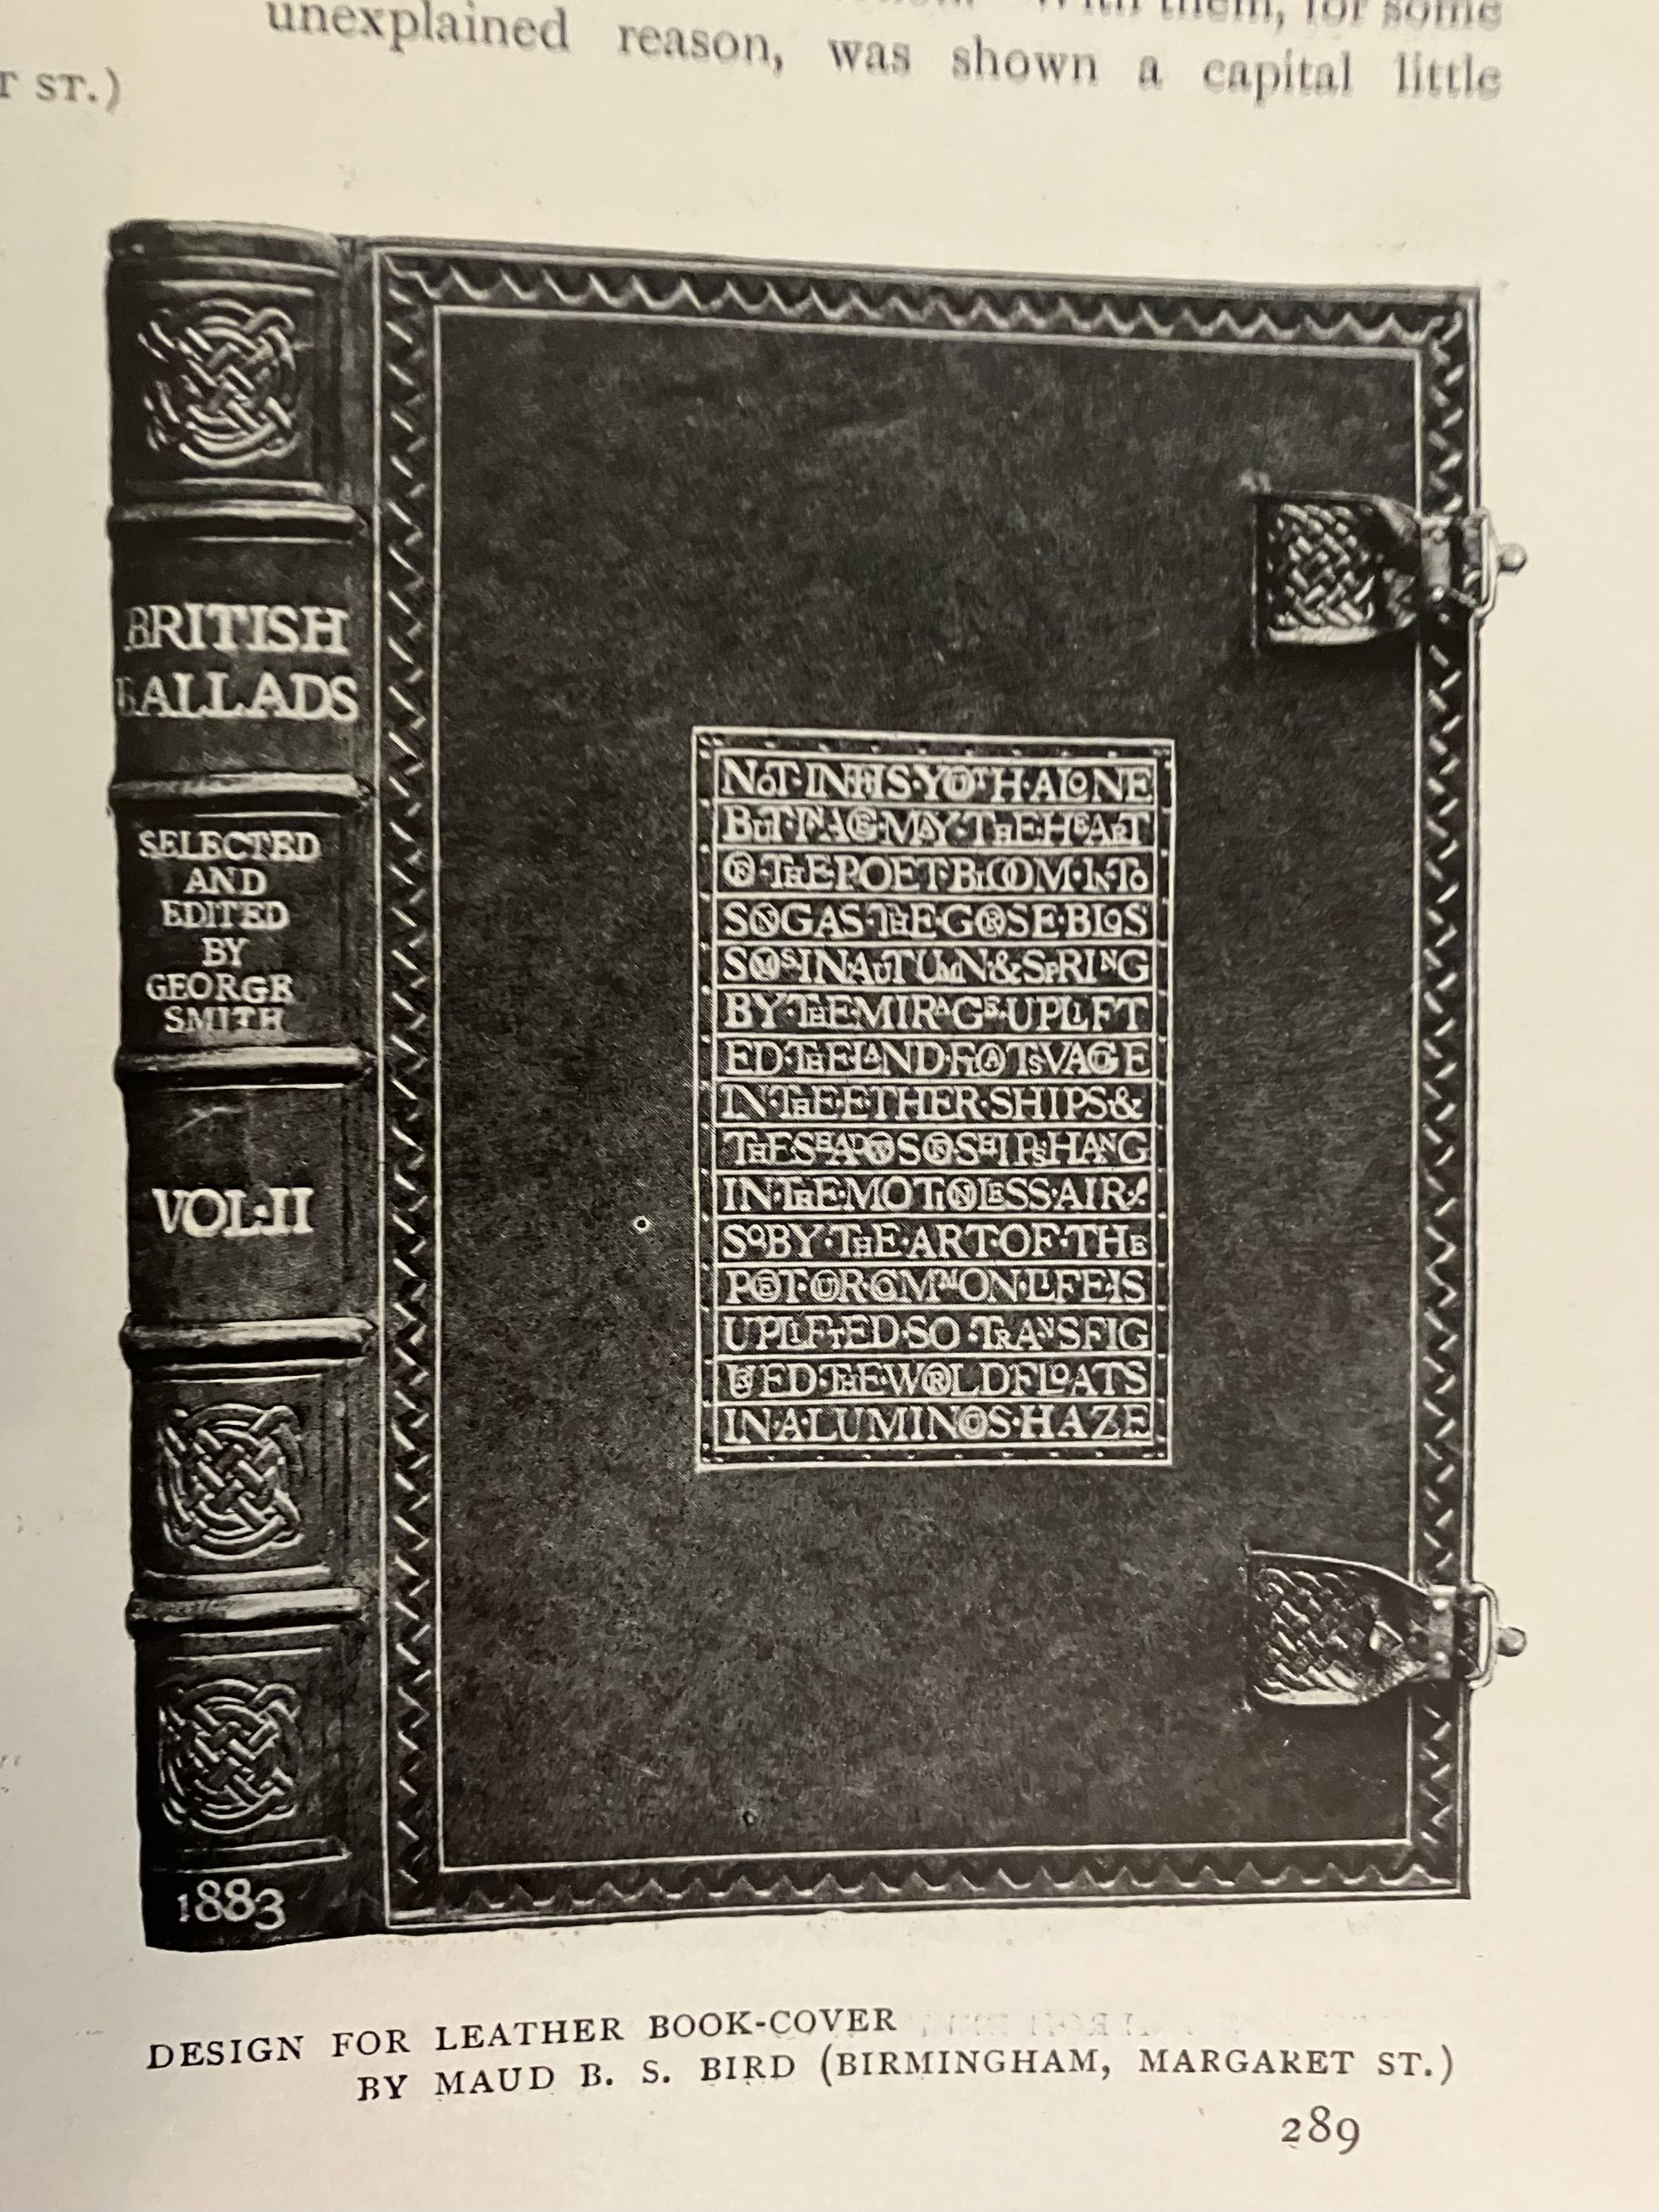 unexplained reason, was shown a capital little
ST.)
BRITISH
BALLADS
SELECTED
AND
EDITED
BY
GEORGE
SMITH
VOL·II
1883
NOT·IN·HIS·YOUTH·ALONE
BUT·IN·AGE·MAY·THE·HEART
OF·THE·POET·BLOOM·INTO
SONG AS·THE·GORSE·BLOS
SOMS IN AUTUMN·&·SPRING
BY·THE MIRAGE·UPLIFT
ED·THE LAND·FLOATS VAGUE
IN·THE ETHER·SHIPS·&
THE SHADOWS OF SHIPS HANG
IN·THE·MOTIONLESS·AIR·/
SO BY·THE·ART·OF·THE
POET·OUR·COMMON·LIFE·IS
UPLIFTED·SO·TRANSFIG
URED·THE·WORLD FLOATS
IN·A·LUMINOUS·HAZE
DESIGN FOR LEATHER BOOK-COVER
BY MAUD B. S. BIRD (BIRMINGHAM, MARGARET ST.)
289